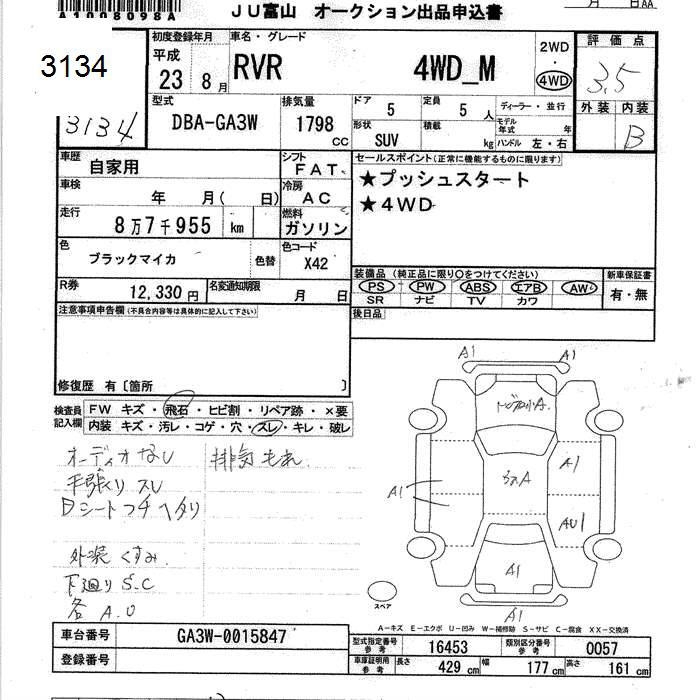 A1008098A
JU富山 オークション出品申込書
月 日AA
3134
3134
初度登録年月
平成
23 8月
車名・グレード
RVR 4WD_M
2WD
・
4WD
評価点
3.5
外装 内装
B
型式
DBA-GA3W
排気量
1798 cc
ドア 5
定員 5人
形状 SUV
積載 kg
ディーラー・並行
モデル年式 年
ハンドル 左・右
車歴 自家用
シフト FAT
車検 年 月( 日)
冷房 AC
走行 8万7千955 km
燃料 ガソリン
色 ブラックマイカ 色替
色コード X42
R券 12,330円
名変通知期限 月 日
セールスポイント(正常に機能するものに限ります)
★プッシュスタート
★4WD
装備品(純正品に限り○をつけてください)
PS PW ABS エアB AW
SR ナビ TV カワ
新車保証書
有・無
後日品
注意事項申告欄(不具合内容等は具体的に記入して下さい)
修復歴 有〔箇所 〕
検査員記入欄
FW キズ・飛石・ヒビ割・リペア跡・×要
内装 キズ・汚レ・コゲ・穴・スレ・キレ・破レ
オーディオなし
手張くり スレ
Dシートフチヘタリ
外装 くすみ
下廻り S.C
各 A.U
排気もれ
A1 A1
A1
A1
AU1
A1
A1
スペア
A-キズ E-エクボ U-凹み W-補修跡 S-サビ C-腐食 XX-交換済
車台番号 GA3W-0015847
登録番号
型式指定番号 参考 16453
類別区分番号 参考 0057
車庫証明用 参考 長さ 429 cm 幅 177 cm 高さ 161 cm